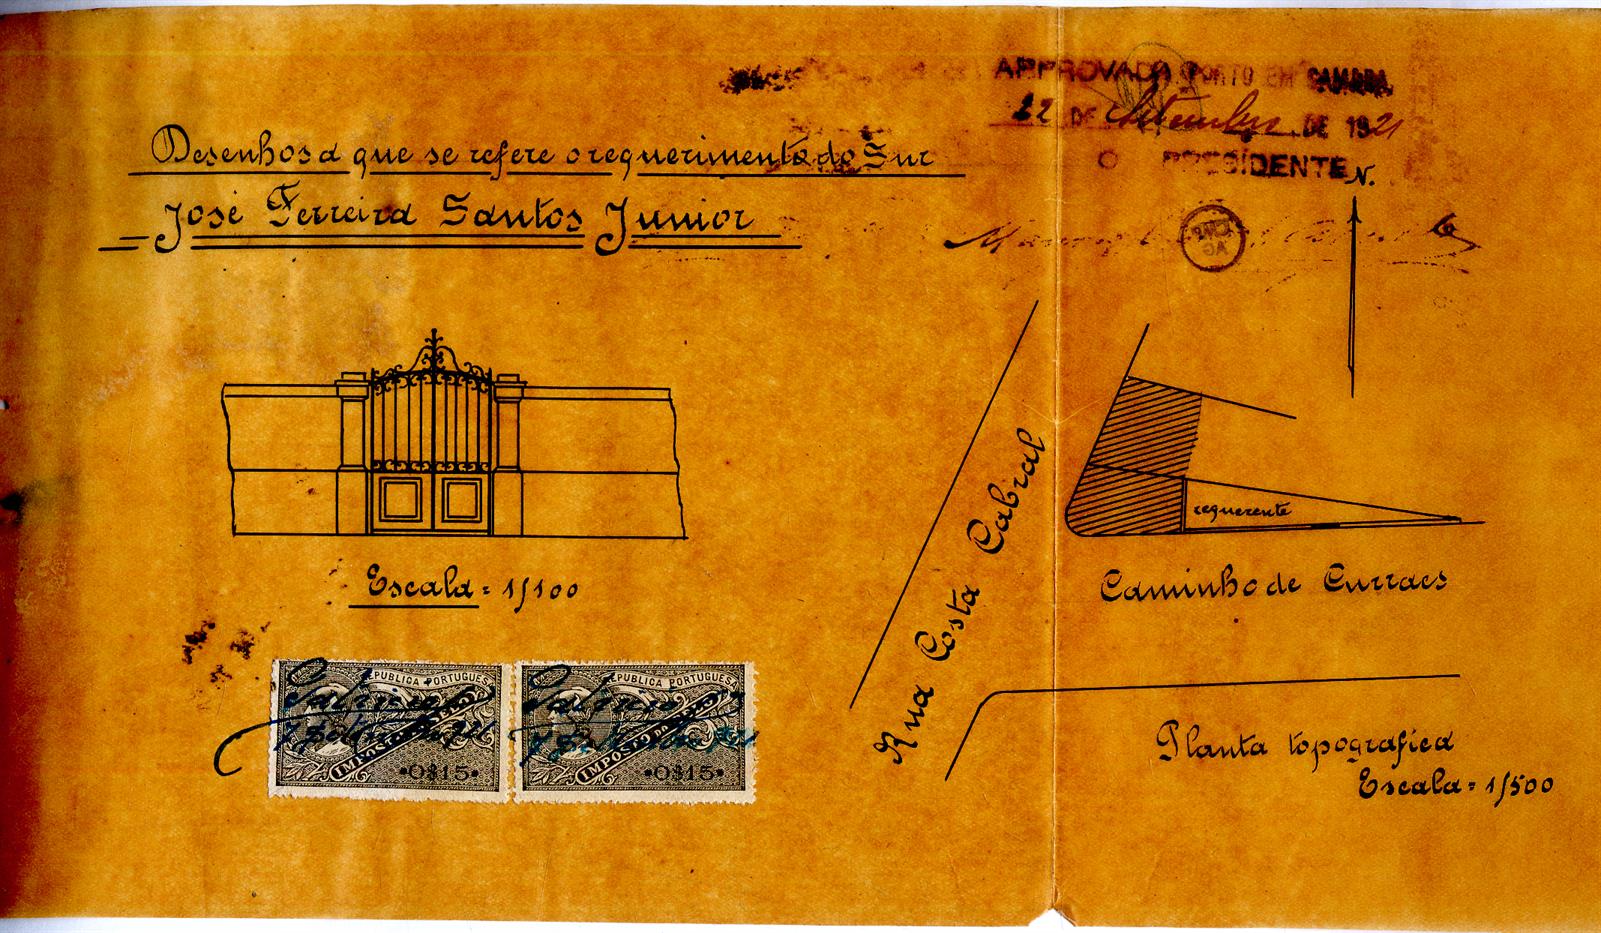 APPROVADA PORTO EM CAMARA,
22 DE Setembro DE 1921
O PRESIDENTE
N.
Desenhos a que se refere o requerimento do Snr
José Ferreira Santos Junior
requerente
Rua Costa Cabral
Caminho de Curraes
Escala = 1/100
REPUBLICA PORTUGUESA
IMPOSTO DO SELO
0$15
REPUBLICA PORTUGUESA
IMPOSTO DO SELO
0$15
Planta topografica
Escala = 1/500